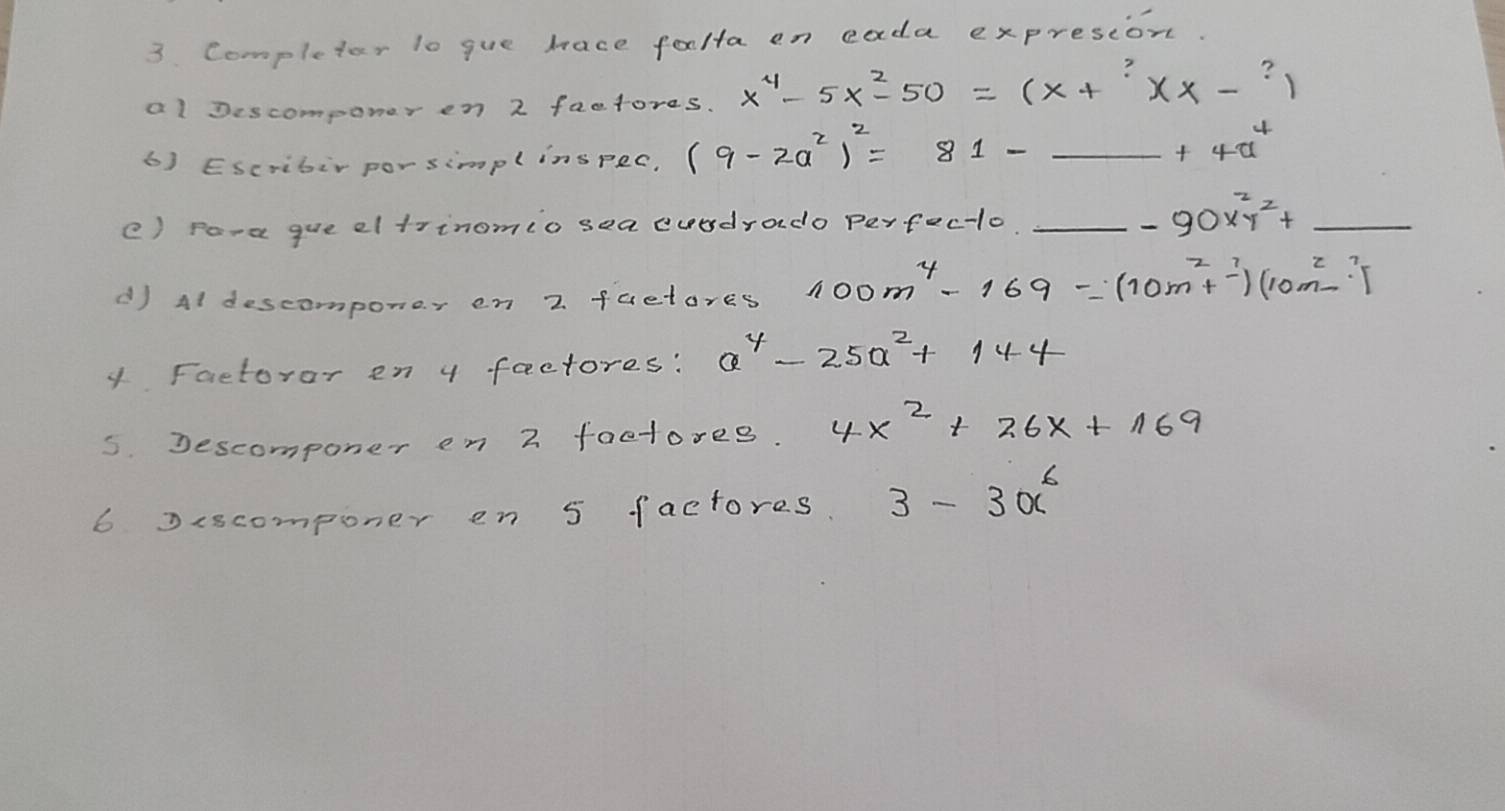 3. Completar lo que hace falta en cada expresión.
a) Descomponer en 2 factores. x⁴ - 5x² - 50 = (x + ?)(x - ?)
b) Escribir por simpl inspec. (9 - 2a²)² = 81 - ____ + 4a⁴
c) Para que el trinomio sea cuadrado perfecto. ____ - 90x²y² + ____
d) Al descomponer en 2 factores 100m⁴ - 169 = (10m² + ?)(10m² - ?)
4. Factorar en 4 factores: a⁴ - 25a² + 144
5. Descomponer en 2 factores. 4x² + 26x + 169
6. Descomponer en 5 factores. 3 - 3a⁶